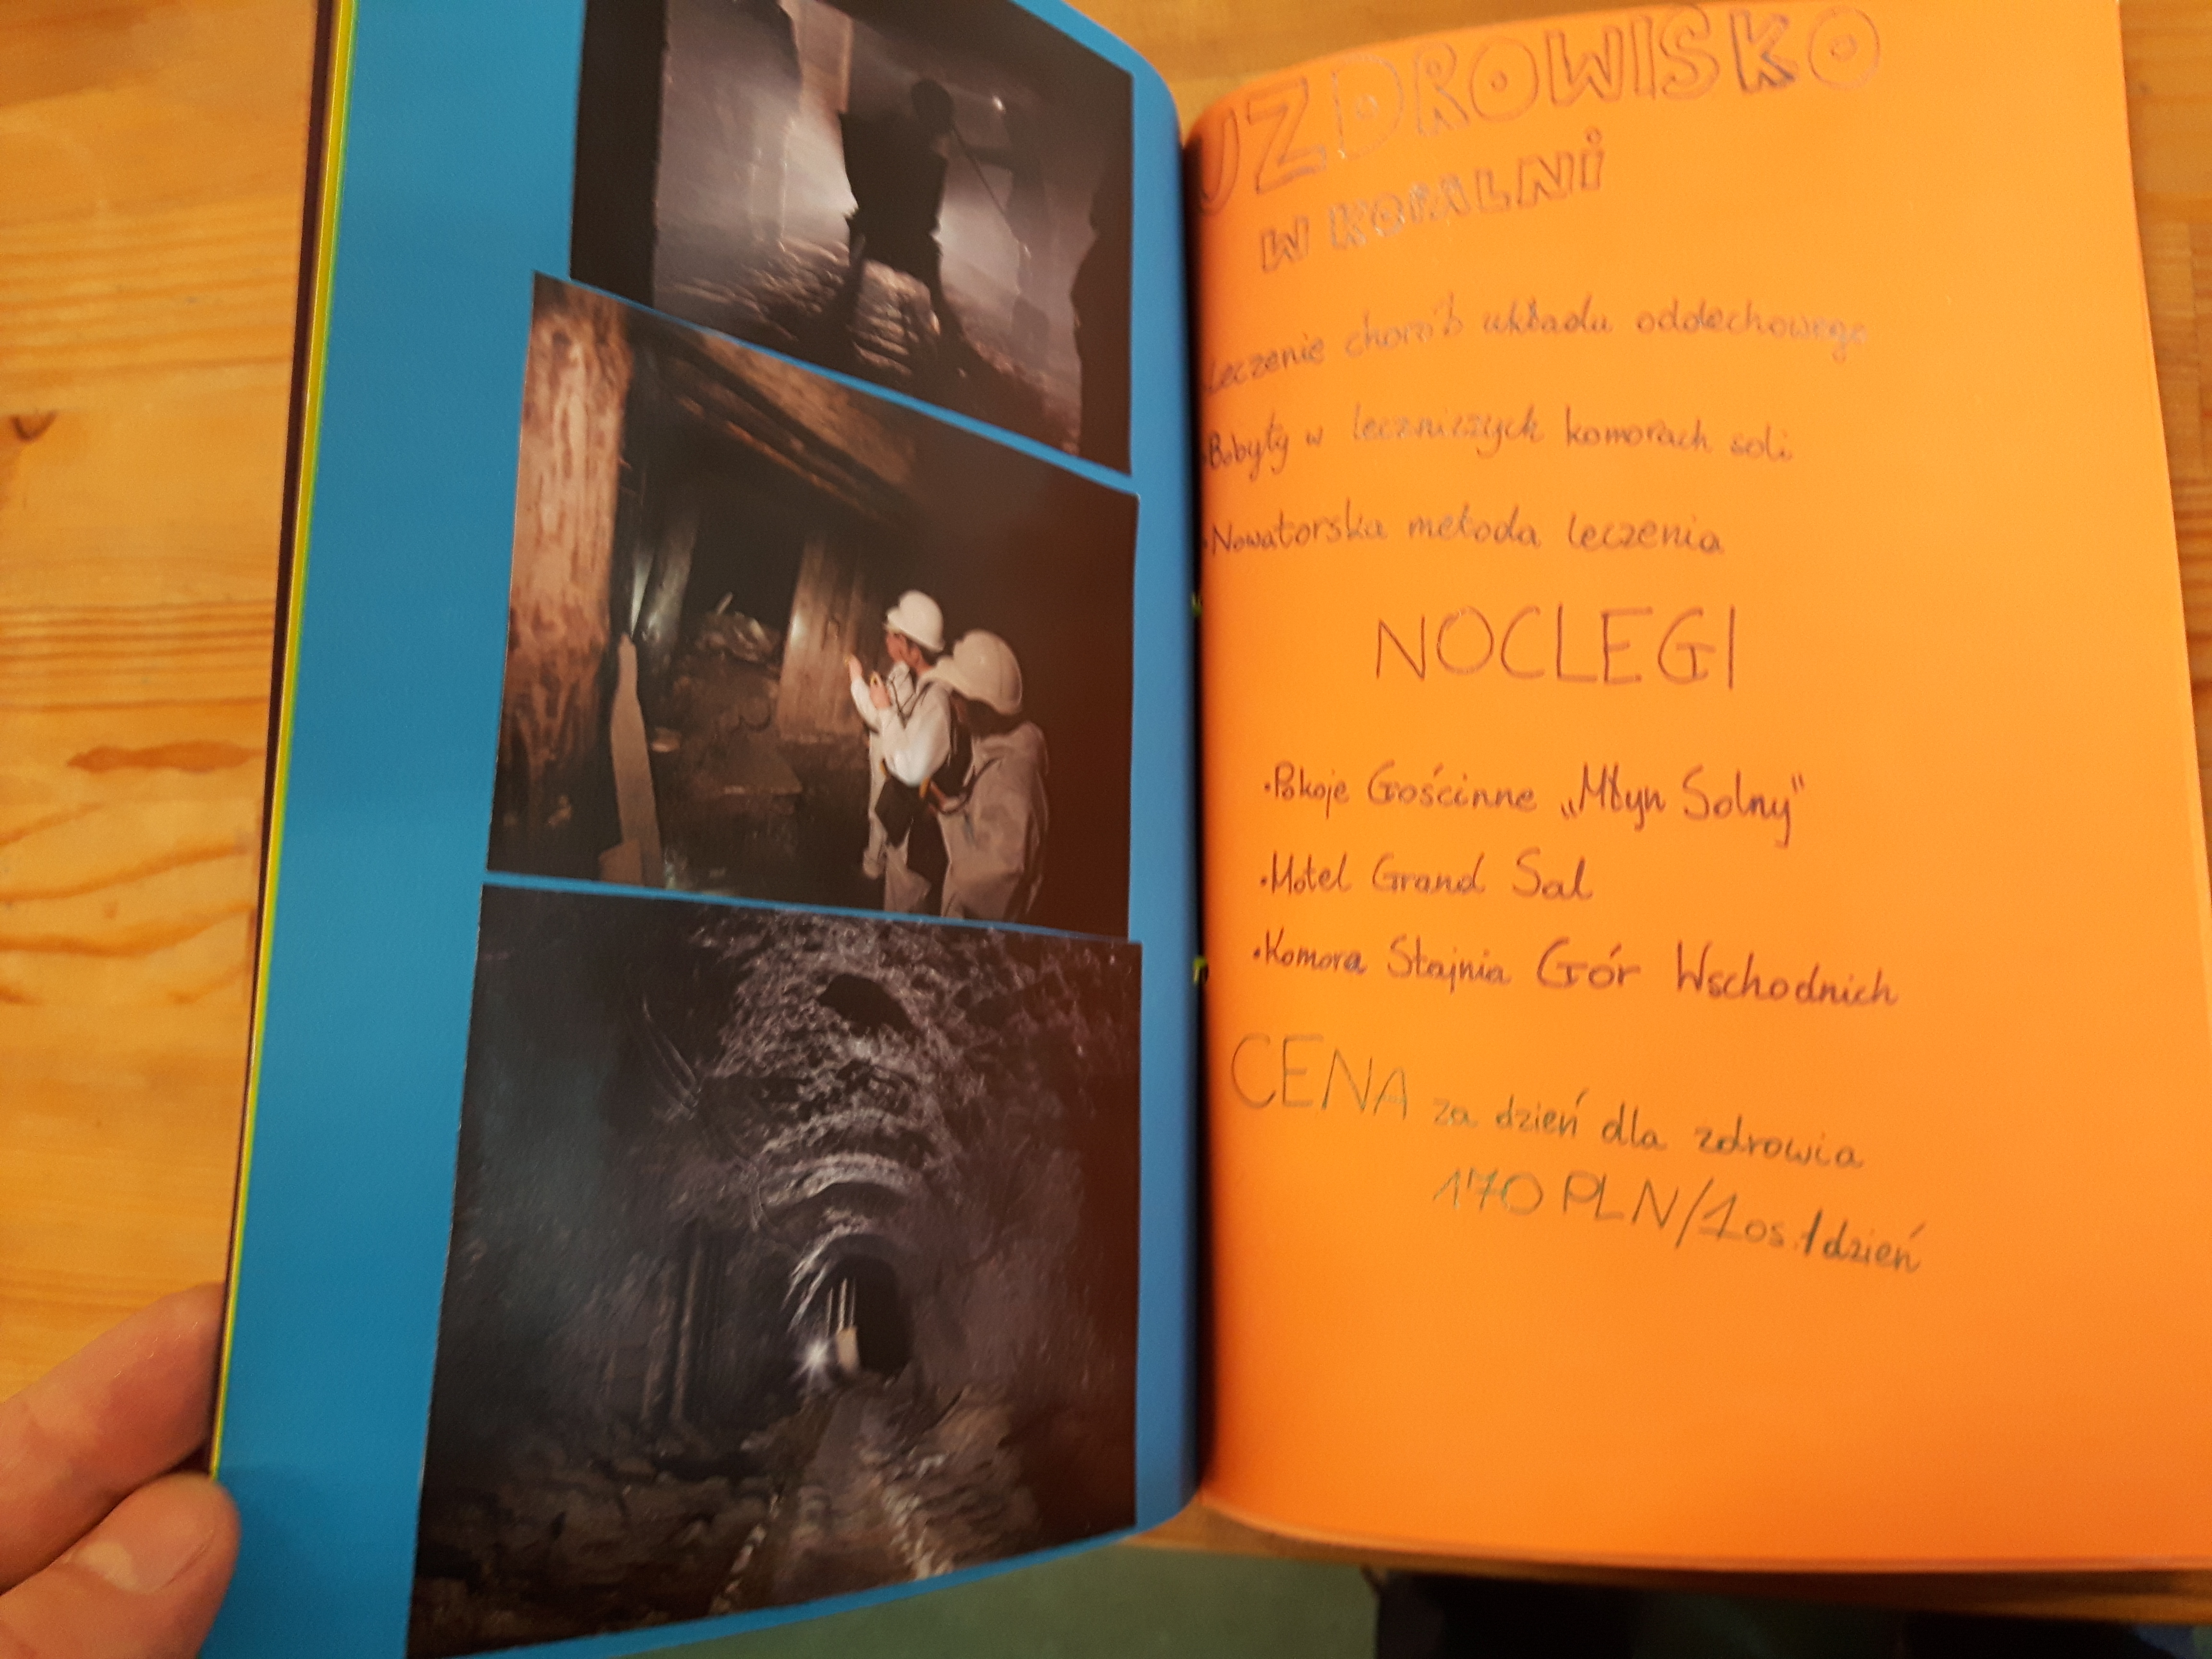 UZDROWISKO
W KOPALNI
•Leczenie chorób układu oddechowego
•Pobyty w leczniczych komorach soli
•Nowatorska metoda leczenia
NOCLEGI
•Pokoje Gościnne „Młyn Solny”
•Hotel Grand Sal
•Komora Stajnia Gór Wschodnich
CENA za dzień dla zdrowia
170 PLN/1os./dzień